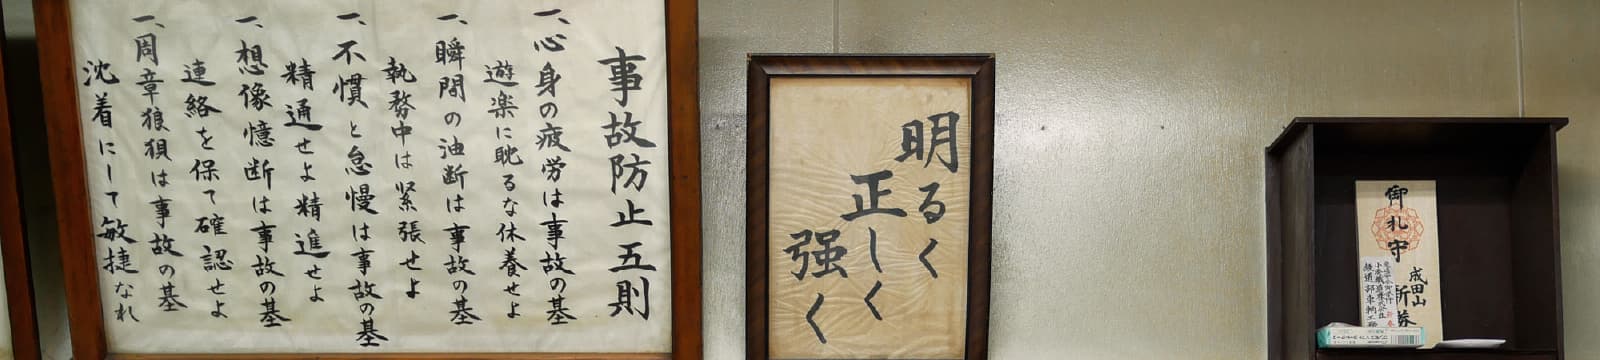 事故防止五則
一、心身の疲労は事故の基
遊楽に耽るな休養せよ
一、瞬間の油断は事故の基
執務中は緊張せよ
一、不慣と怠慢は事故の基
精通せよ精進せよ
一、想像憶断は事故の基
連絡を保て確認せよ
一、周章狼狽は事故の基
沈着にして敏捷なれ
明るく
正しく
强く
御札守
成田山
新勝